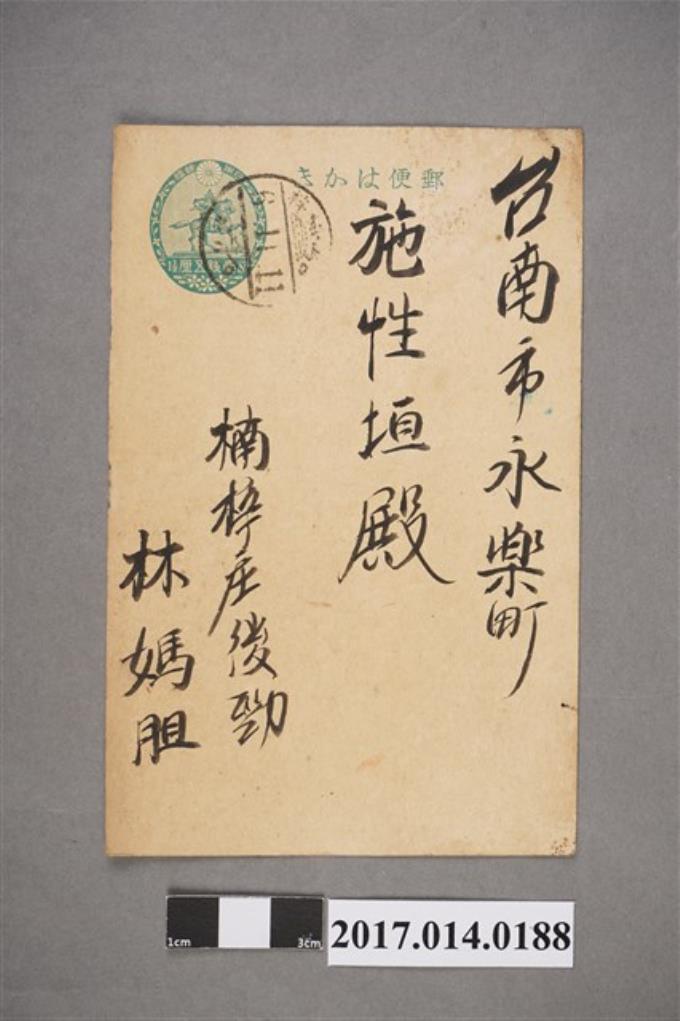 郵便はかき
台南市永樂町
施性垣殿
楠梓庄後勁
林媽胆
11
1cm
3cm
2017.014.0188